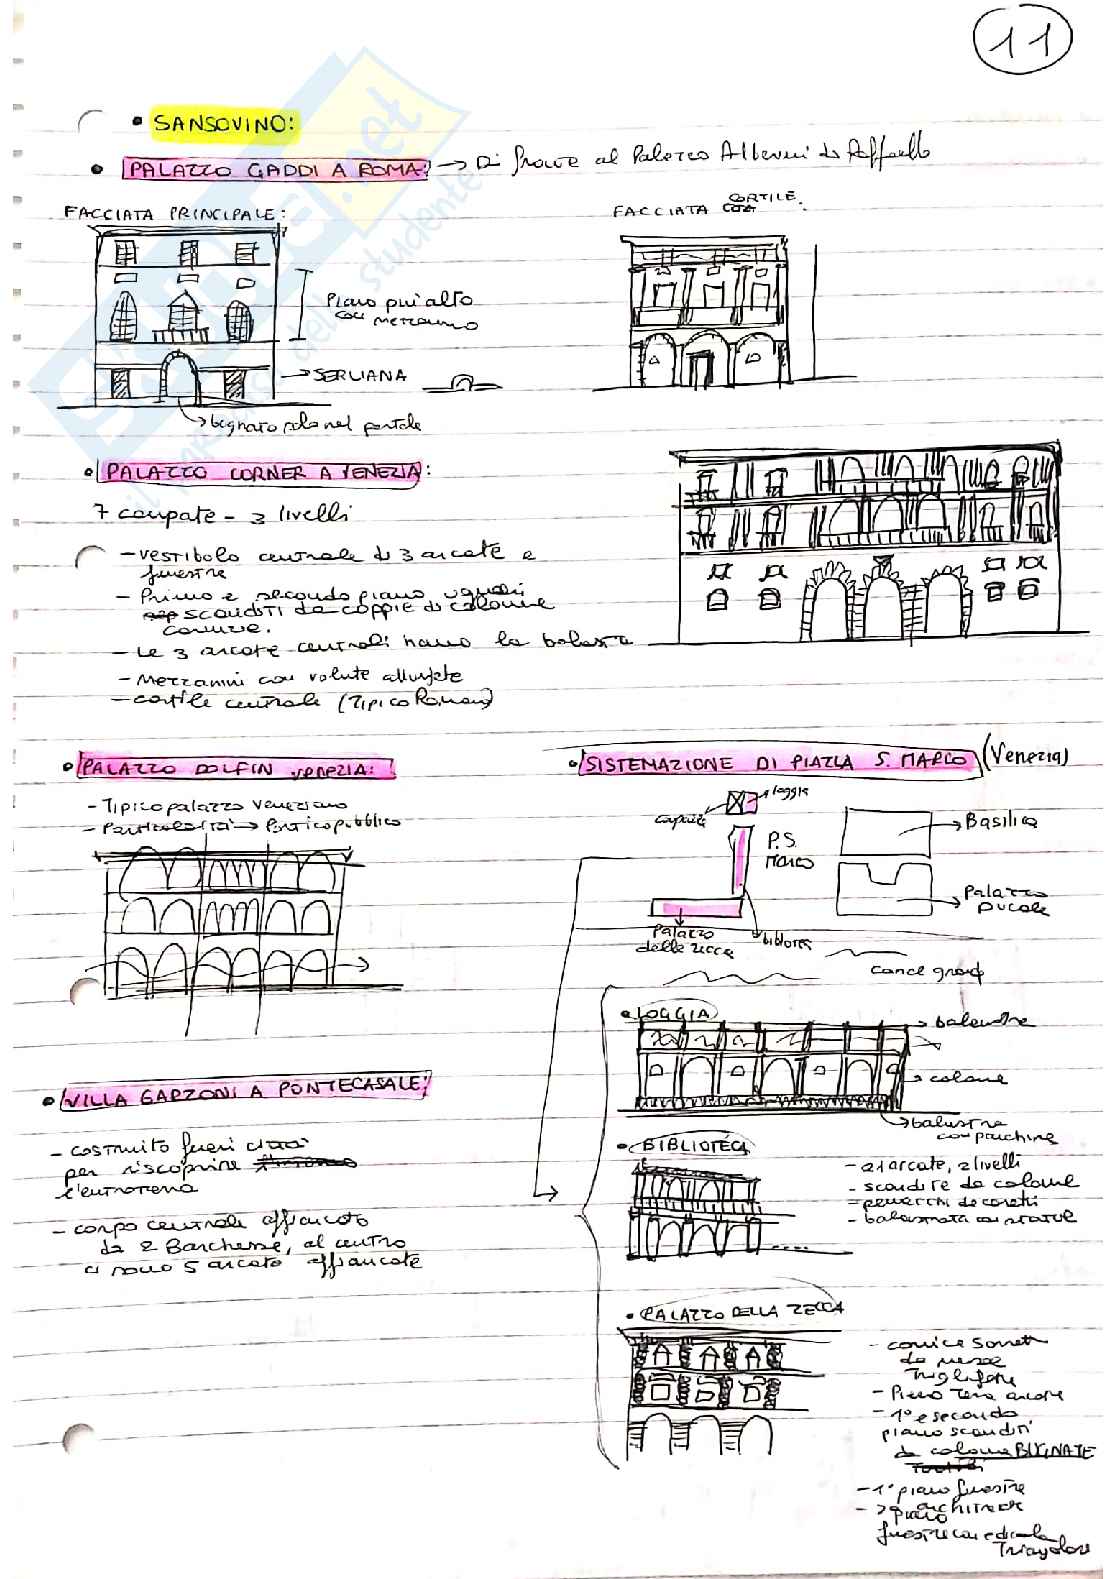 11
• SANSOVINO:
• PALAZZO GADDI A ROMA: → Di fronte al Palazzo Alberini di Raffaello
FACCIATA PRINCIPALE:
FACCIATA CORTILE.
Piano piu' alto
con mezzanino
→ SERLIANA
→ bugnato solo nel portale
• PALAZZO CORNER A VENEZIA:
7 campate - 3 livelli
- vestibolo centrale di 3 arcate e
finestre
- Primo e secondo piano uguali
scanditi da coppie di colonne
- Le 3 arcate centrali hanno la balaustra
- Mezzanini con volute allungate
- cortile centrale (Tipico Romano)
• PALAZZO DOLFIN VENEZIA:
- Tipico palazzo veneziano
- Particolarità → Portico pubblico
• SISTEMAZIONE DI PIAZZA S. MARCO (Venezia)
loggia
P.S.
Marco
→ Basilica
→ Palazzo
Ducale
Palazzo
della zecca
• LOGGIA
→ balaustre
→ colonne
→ balustra
con panchine
• VILLA GARZONI A PONTECASALE:
- costruito fuori città
per riscoprire
l'entroterra
- corpo centrale affiancato
da 2 Barchesse, al centro
ci sono 5 arcate affiancate
• BIBLIOTECA
- 21 arcate, 2 livelli
- scandite da colonne
- pennacchi decorati
- balaustrata con statue
• PALAZZO DELLA ZECCA
- cornice sorretta
da mezze
- Piano terra arcate
- 1° e secondo
piano scanditi
da colonne BUGNATE
- 1° piano finestre
architrave
- 2° piano
finestre con edicola
Triangolare